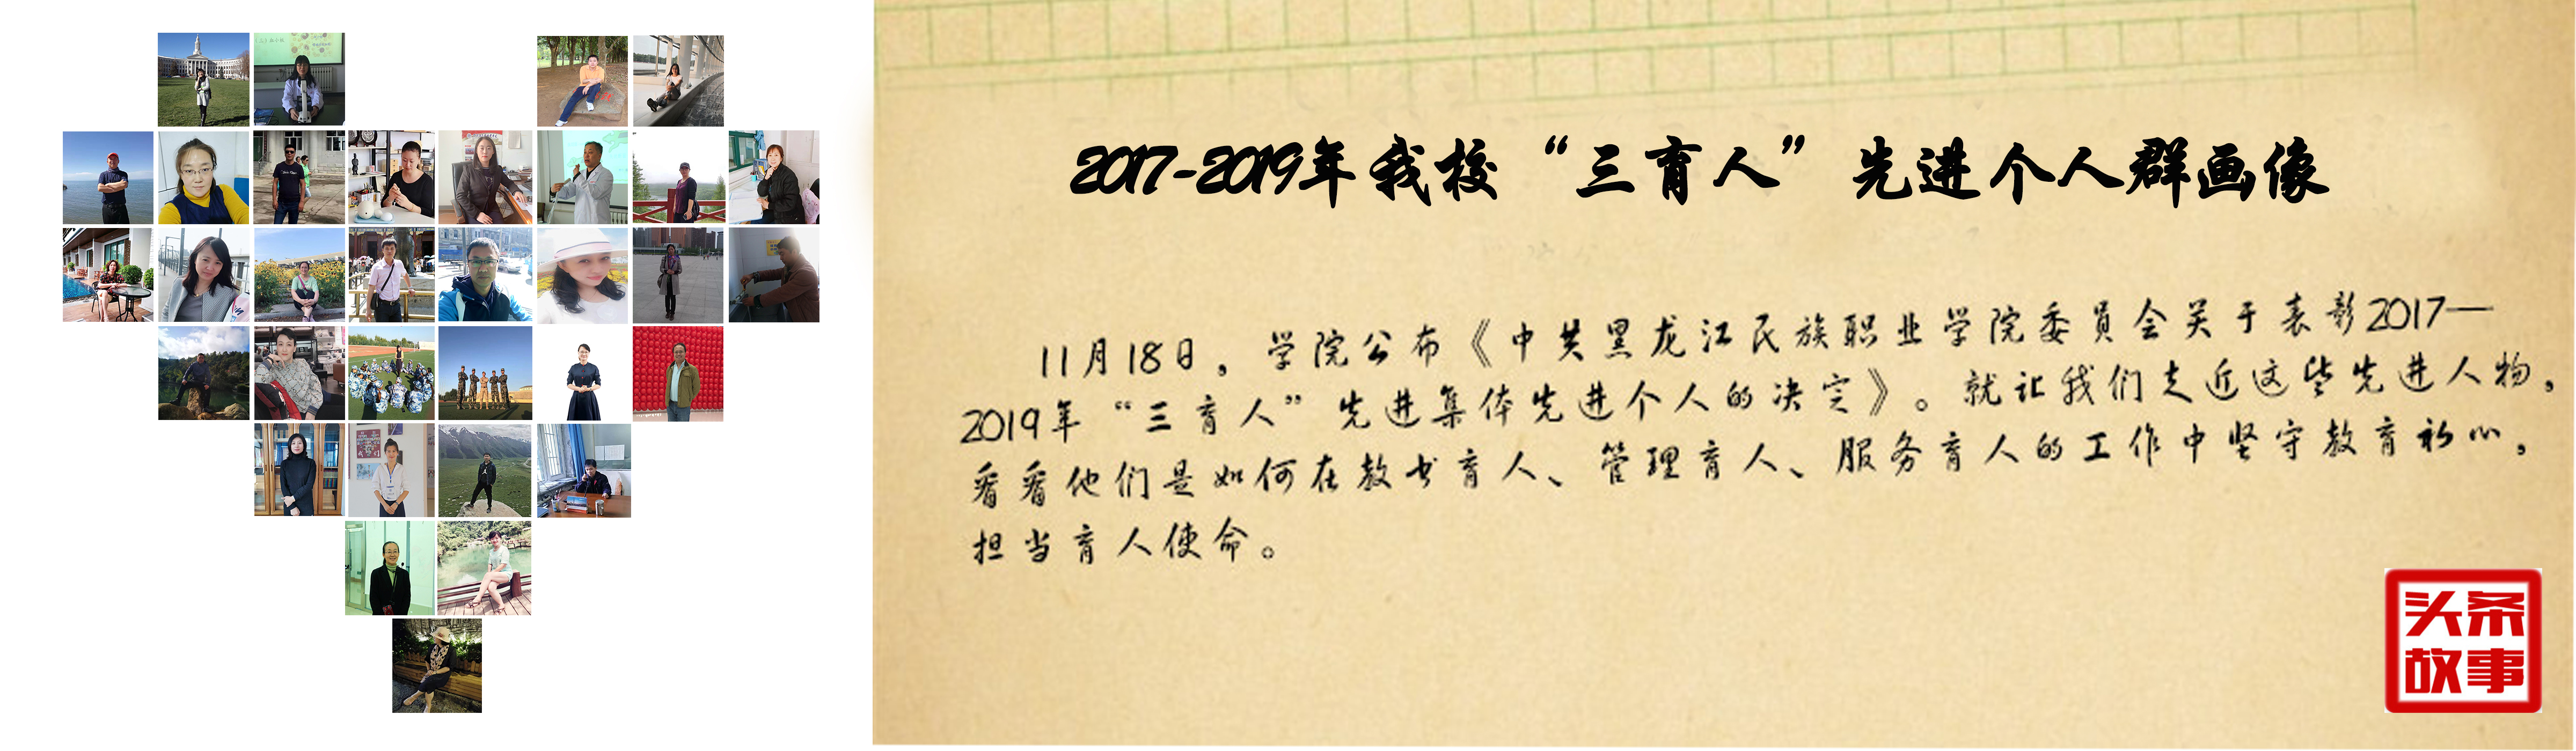 2017-2019年我校“三育人”先进个人群画像
11月18日，学院公布《中共黑龙江民族职业学院委员会关于表彰2017—
2019年“三育人”先进集体先进个人的决定》。就让我们走近这些先进人物，
看看他们是如何在教书育人、管理育人、服务育人的工作中坚守教育初心，
担当育人使命。
头条
故事